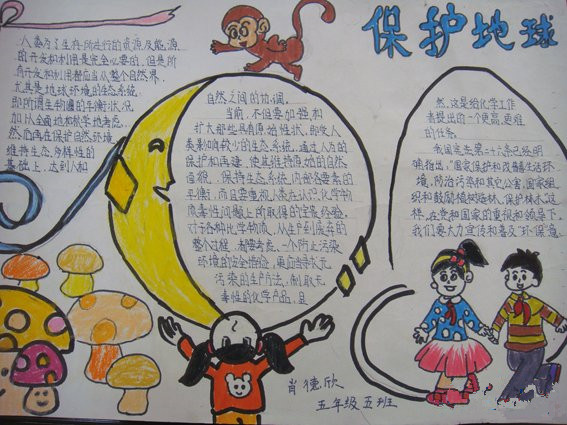 保护地球
人类为了生存所进行的资源及能源
的开发和利用是完全必要的,但是所
有开发和利用都应当从整个自然界,
尤其是地球环境的生态系统,
即所谓生物圈的平衡状况
加以全面地和数学地考虑.
然而再在保护自然环境
维持生态多样性的
基础上,达到人和
自然之间的协调。
当前,不但要加强和
扩大那些具有原始性状,即受人
类影响较少的生态系统,通过人为的
保护和再建,使其维持原始的自然
面貌,保持生态系统内部各要素的
平衡,而且要重视人类在认识化学物
质毒性问题上所取得的宝贵经验。
对于各种化学物质,从生产到废弃的
整个过程,都要考虑.一个防止污染
环境的安全措施,更应当学大无
污染的生产方法,制取无
毒性的化学产品,且
然,这是给化学工作
者提出的一个更高,更难
的任务.
我国宪法第二十六条已经明
确指出:"国家保护和改善生活环
境,防治污染和其它公害,国家组
织和鼓励植树造林,保护林木.这
样,在党和国家的重视和领导下。
我们要大力宣传和普及"环保"意
肖德欣
五年级五班